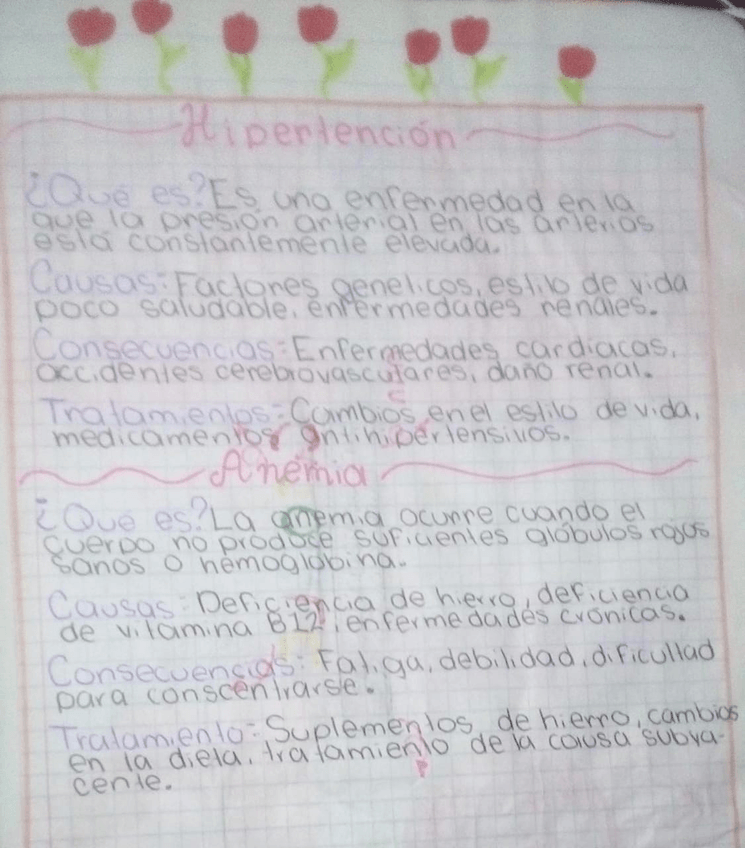 Hipertención
¿Qué es? Es una enfermedad en la
que la presión arterial en las arterias
está constantemente elevada.
Causas: Factores geneticos, estilo de vida
poco saludable, enfermedades renales.
Consecuencias: Enfermedades cardiacas,
accidentes cerebrovasculares, daño renal.
Tratamientos: Cambios en el estilo de vida,
medicamentos antihipertensivos.
Anemia
¿Qué es? La anemia ocurre cuando el
cuerpo no produce suficientes glóbulos rojos
sanos o hemoglobina.
Causas: Deficiencia de hierro, deficiencia
de vitamina B12, enfermedades crónicas.
Consecuencias: Fatiga, debilidad, dificultad
para conscentrarse.
Tratamiento: Suplementos de hierro, cambios
en la dieta, tratamiento de la causa subya-
cente.